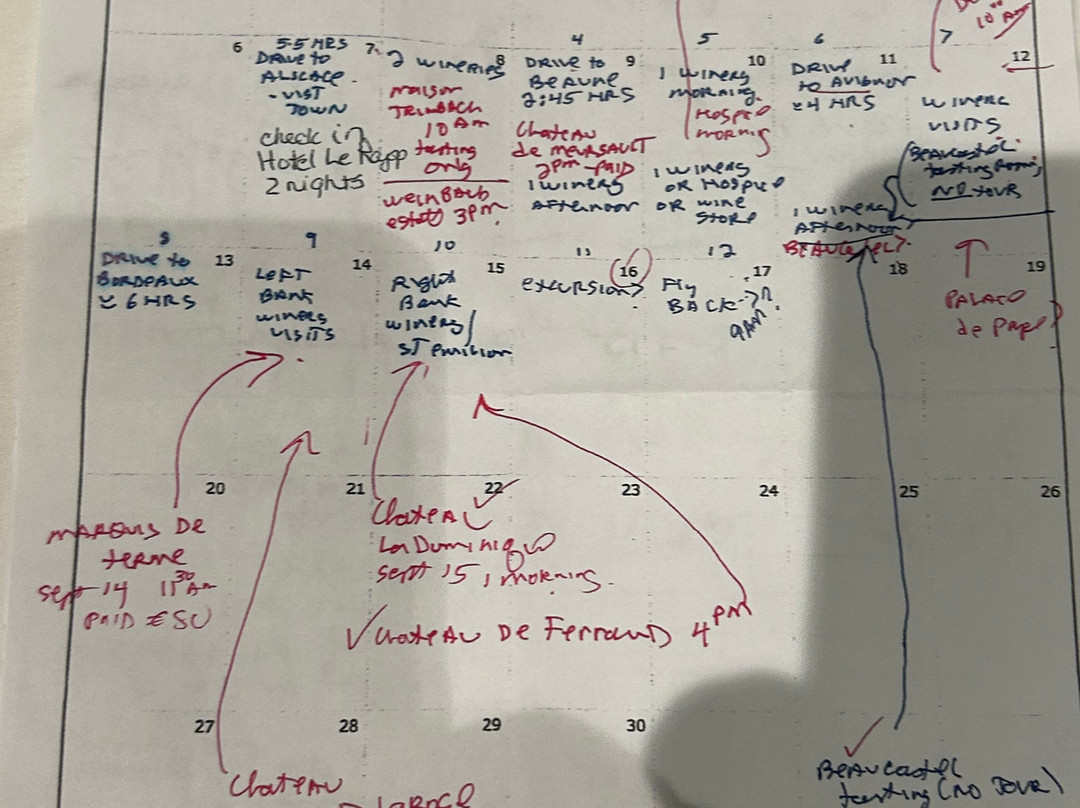 10 Am
6
5.5 HRS
DRIVE to
ALSCACE
- VIST
TOWN
check in
Hotel Le Rapp
2 nights
7
2 WINERIES
maison
TRIMBACH
10 Am
tasting
only
weinBach
estate 3pm
4
8
DRIVE to
BEAUNE
2:45 HRS
Chateau
de MEURSAULT
2pm - PAID
1 WINERY
AFTERNOON
5
9
1 WINERY
MORNING
HOSPICE
MORNIG
1 WINERY
OR HOSPICE
OR WINE
STORE
6
10
DRIVE
to AVIGNON
≈4 HRS
1 WINERY
AFTERNOON?
7
11
WINERE
VISITS
BEAUCASTEL
tasting
NO TOUR
12
8
DRIVE to
BORDEAUX
≈ 6 HRS
13
9
LEFT
BANK
WINERY
VISITS
14
10
Right
Bank
WINERY/
ST Emilion
15
11
EXCURSION?
16
12
Fly
BACK->?
9AM?
17
18
PALACE
de Pape
19
20
21
22
23
24
25
26
MARQUIS DE
terme
sept 14 11:30 Am
PAID €50
Chateau
La Dominique
sept 15, morning.
✓ Chateau De Ferrand 4 PM
27
28
29
30
Chateau
BEAUCASTEL
tasting (NO TOUR)